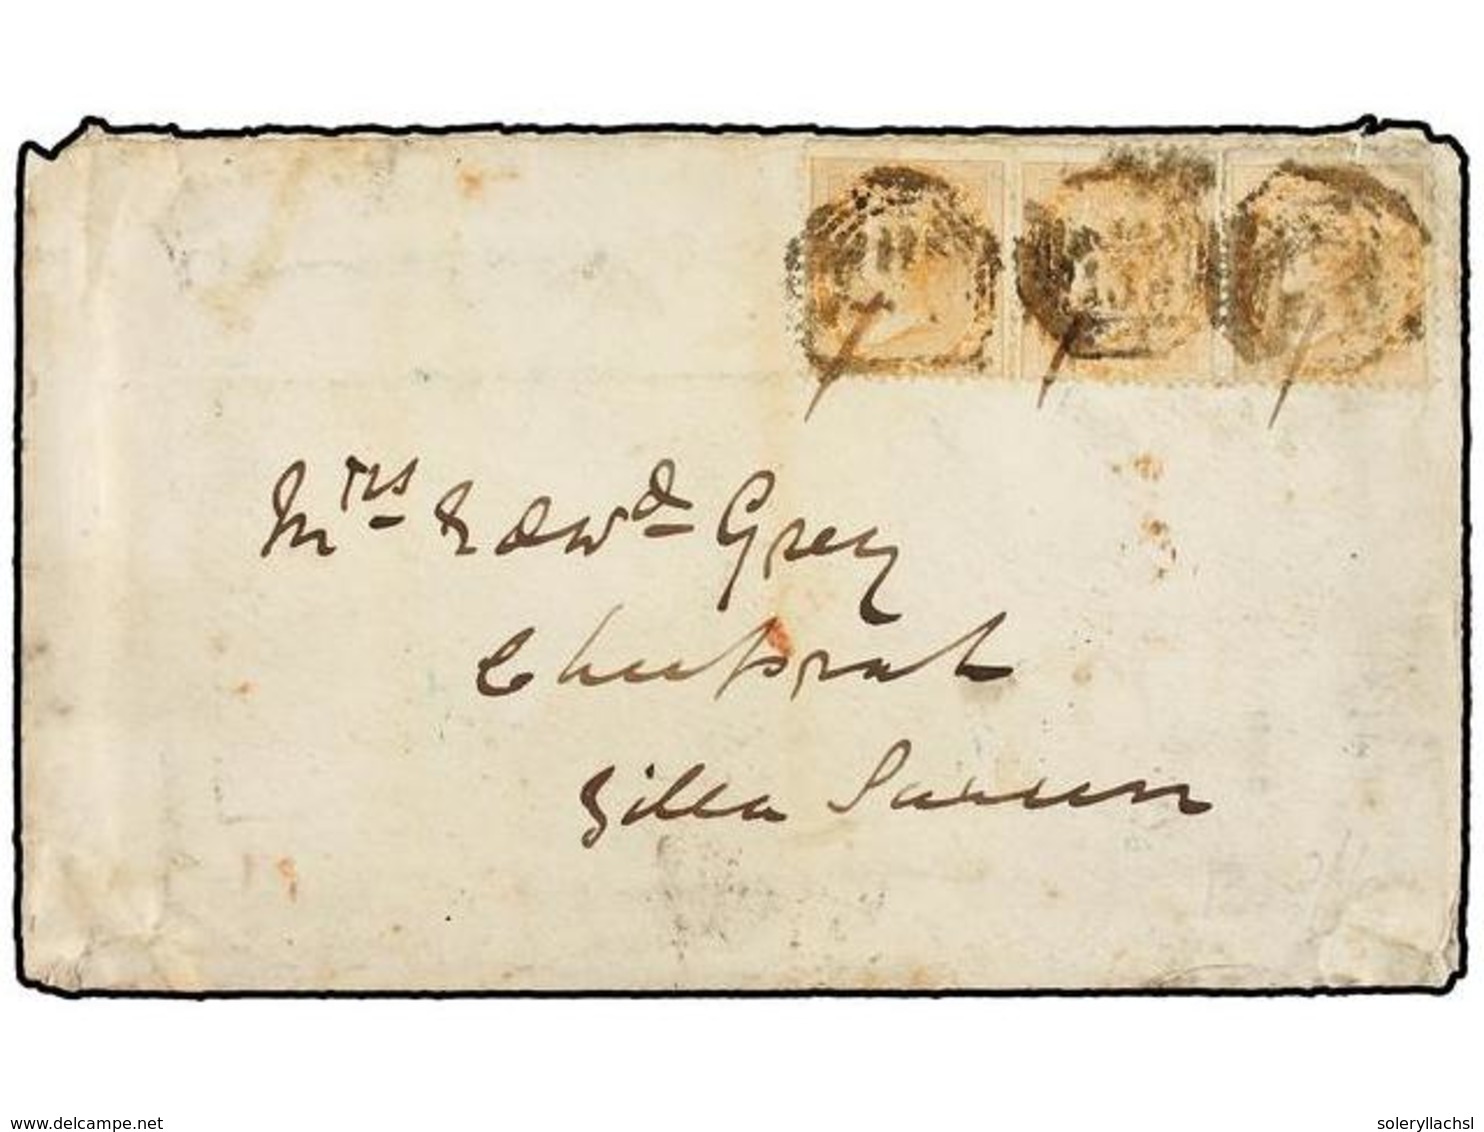 Mrs Edwd Grey
Chuprah
Zilla Sarun
delcampe.net
soleryllachsl